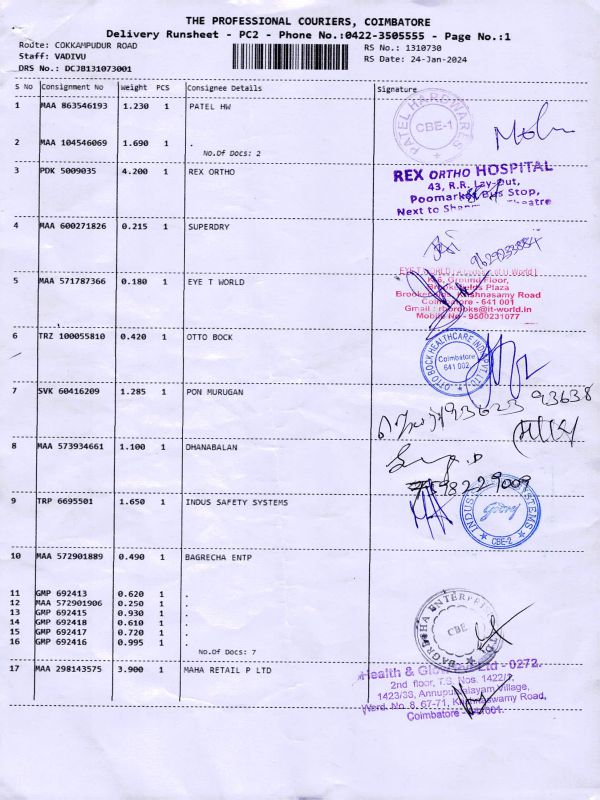 THE PROFESSIONAL COURIERS, COIMBATORE
Delivery Runsheet - PC2 - Phone No.:0422-3505555 - Page No.:1
Route: COKKAMPUDUR ROAD RS No.: 1310730
Staff: VADIVU RS Date: 24-Jan-2024
DRS No.: DCJB131073001
S No Consignment No Weight PCS Consignee Details Signature
1 MAA 863546193 1.230 1 PATEL HW
PATEL HARDWARES
CBE-1
2 MAA 104546069 1.690 1 .
No.Of Docs: 2
3 PDK 5009035 4.200 1 REX ORTHO
REX ORTHO HOSPITAL
43, R.R. Lay-Out,
Poomarket Bus Stop,
Next to
4 MAA 600271826 0.215 1 SUPERDRY
9629233884
5 MAA 571787366 0.180 1 EYE T WORLD
Ground Floor,
Plaza
Krishnasamy Road
Coimbatore - 641 001
Gmail : rbbrooks@it-world.in
Mobile No - 9500231077
6 TRZ 100055810 0.420 1 OTTO BOCK
OTTO BOCK HEALTHCARE INDIA PVT. LTD.
Coimbatore
641 002
7 SVK 60416209 1.285 1 PON MURUGAN
93623 93638
8 MAA 573934661 1.100 1 DHANABALAN
98229009
9 TRP 6695501 1.650 1 INDUS SAFETY SYSTEMS
INDUS SYSTEMS
CBE-2
10 MAA 572901889 0.490 1 BAGRECHA ENTP
11 GMP 692413 0.620 1 .
12 MAA 572901906 0.250 1 .
13 GMP 692415 0.930 1 .
14 GMP 692418 0.610 1 .
15 GMP 692417 0.720 1 .
16 GMP 692416 0.995 1 .
No.Of Docs: 7
BAGRECHA ENTERPRISES LTD
CBE
17 MAA 298143575 3.900 1 MAHA RETAIL P LTD
Health & Glow Pvt Ltd - 0272.
2nd floor, T.S. Nos. 1422/2,
1423/3S, Annupurpalayam Village,
Ward. No. 8, 67-71, Krishnaswamy Road,
Coimbatore - 641001.